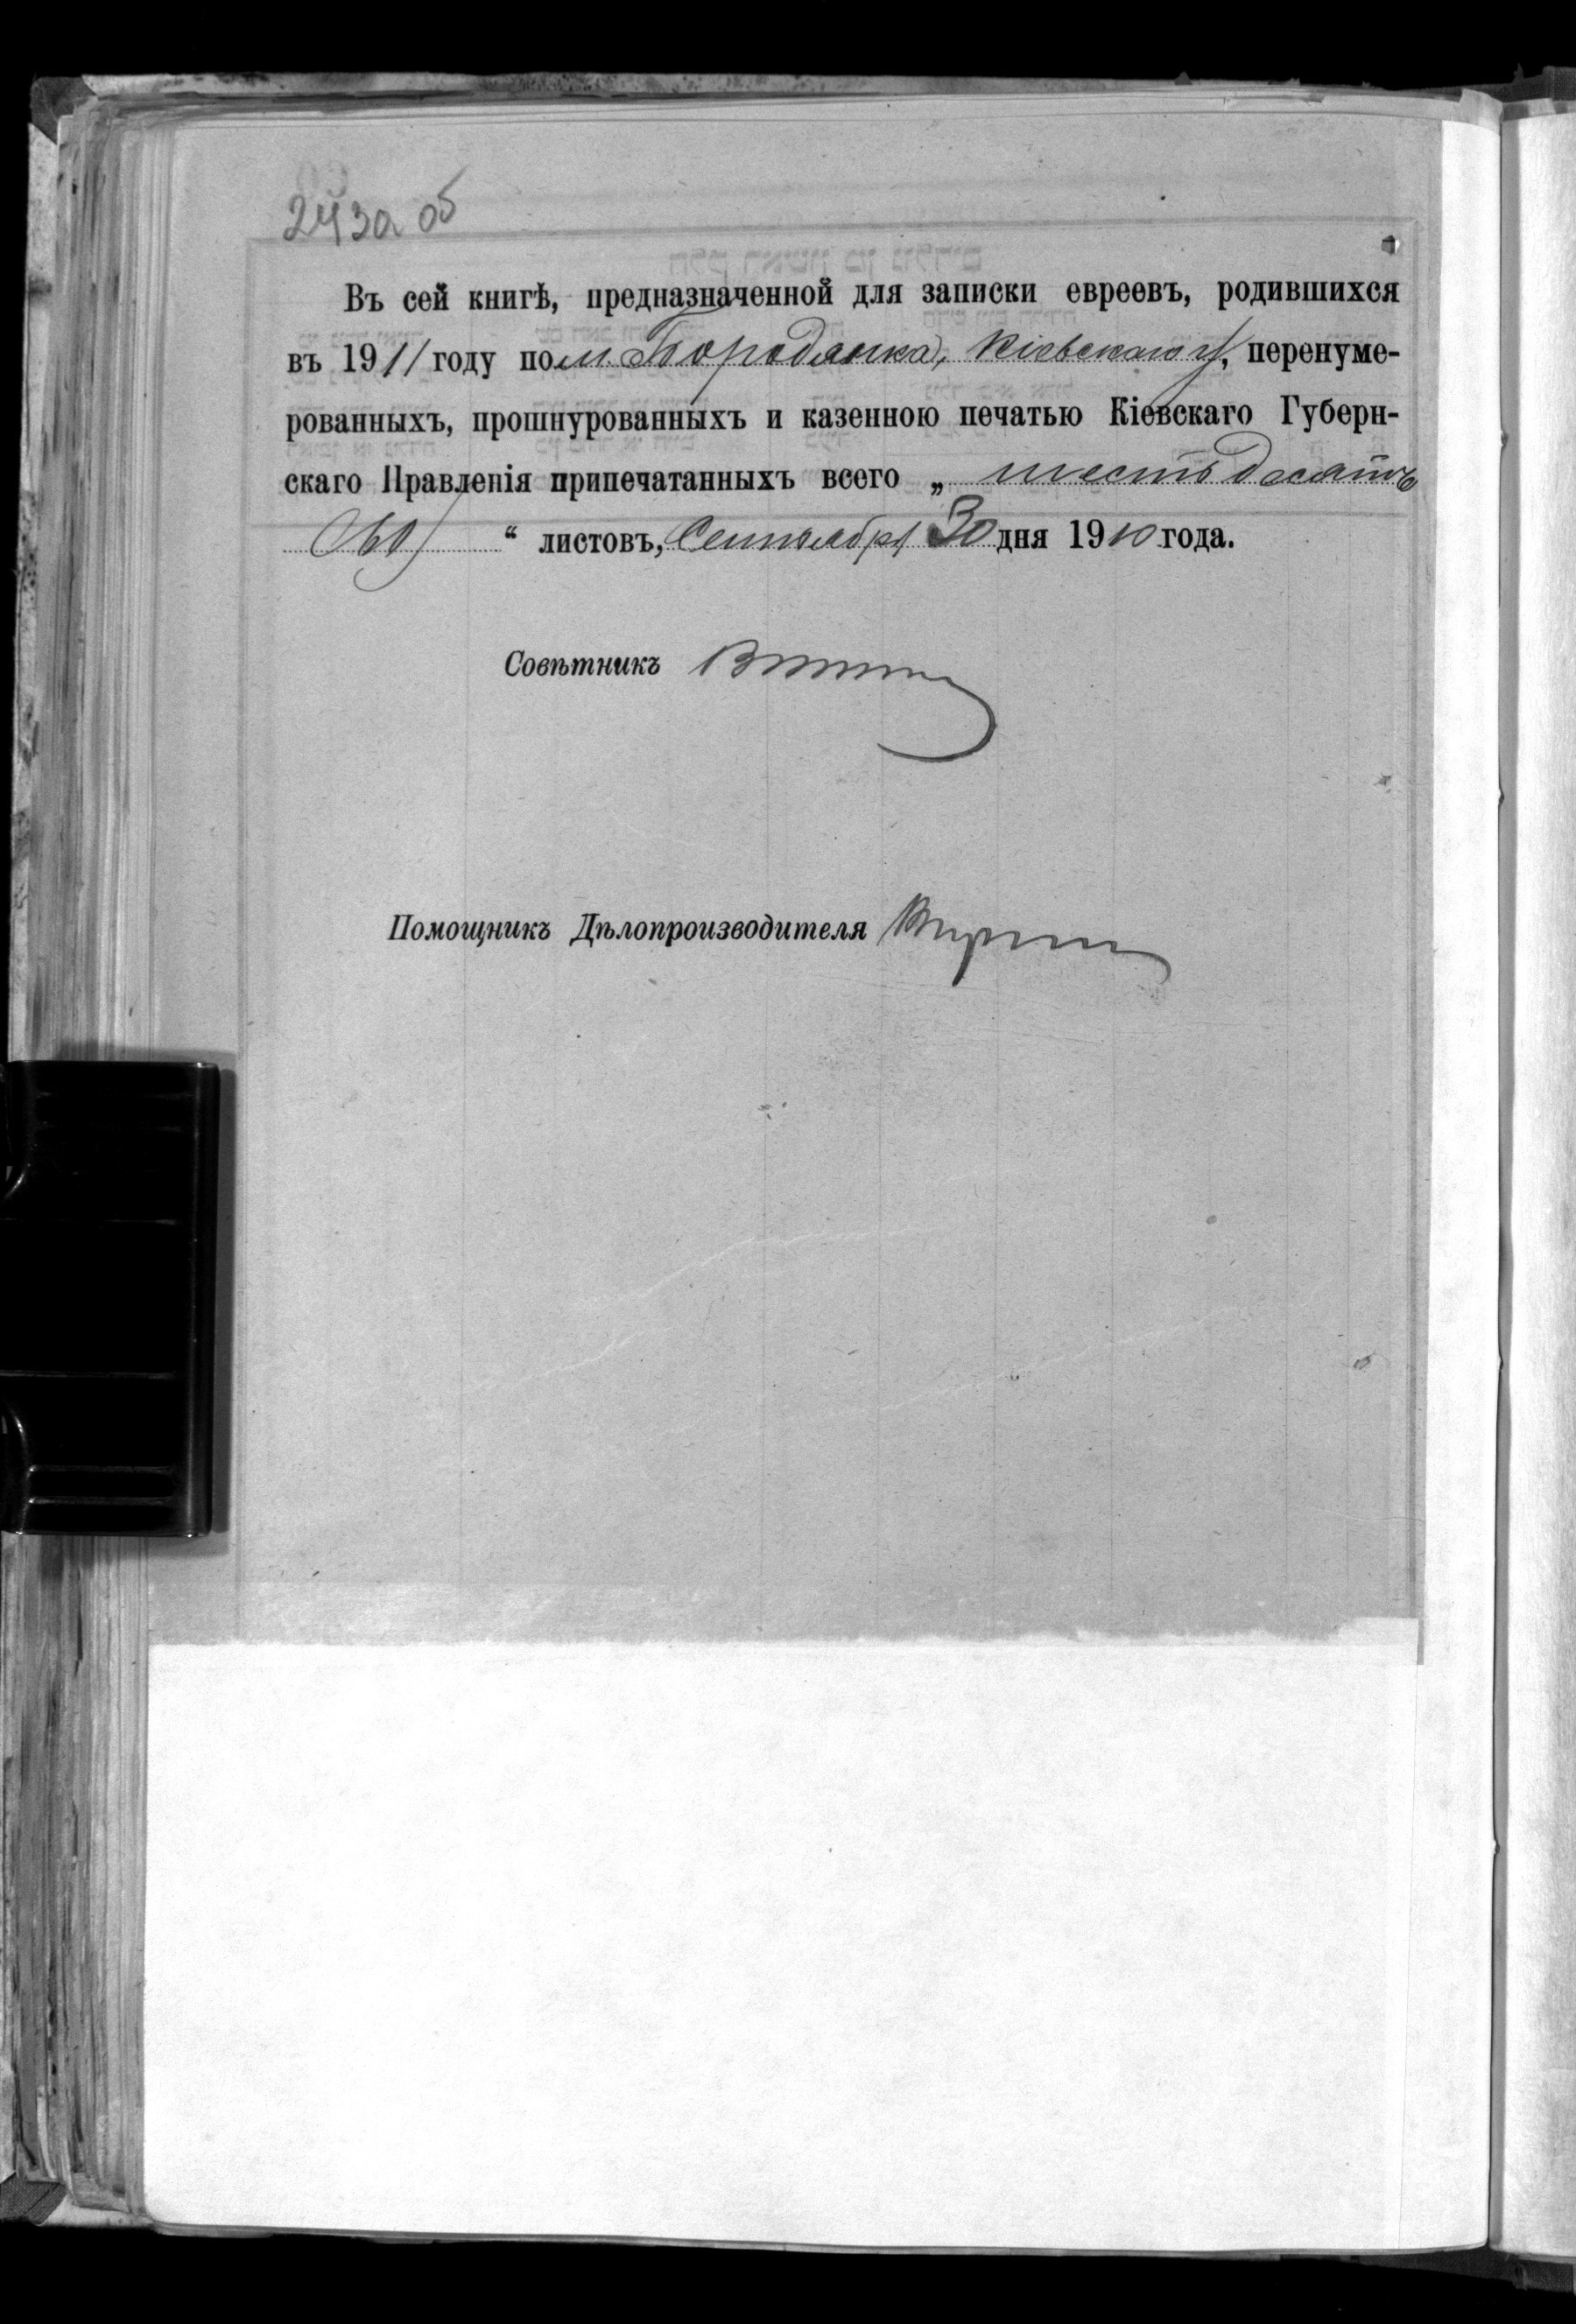 243а об
Въ сей книгѣ, предназначенной для записки евреевъ, родившихся
въ 1911 году по м. Бородянка, Кіевскаго у, перенуме-
рованныхъ, прошнурованныхъ и казенною печатью Кіевскаго Губерн-
скаго Правленія припечатанныхъ всего „ шестьдесятъ
(60) “ листовъ, Сентября 30 дня 1910 года.
Совѣтникъ
Помощникъ Дѣлопроизводителя